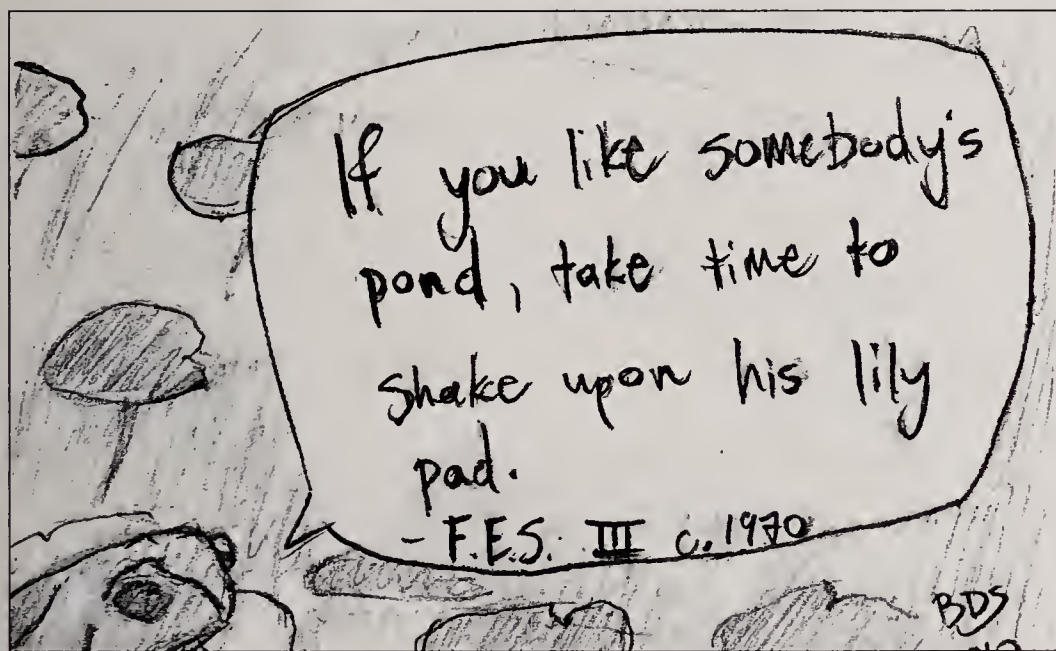 If you like somebody's
pond, take time to
shake upon his lily
pad.
- F.E.S. III c. 1970
BDS